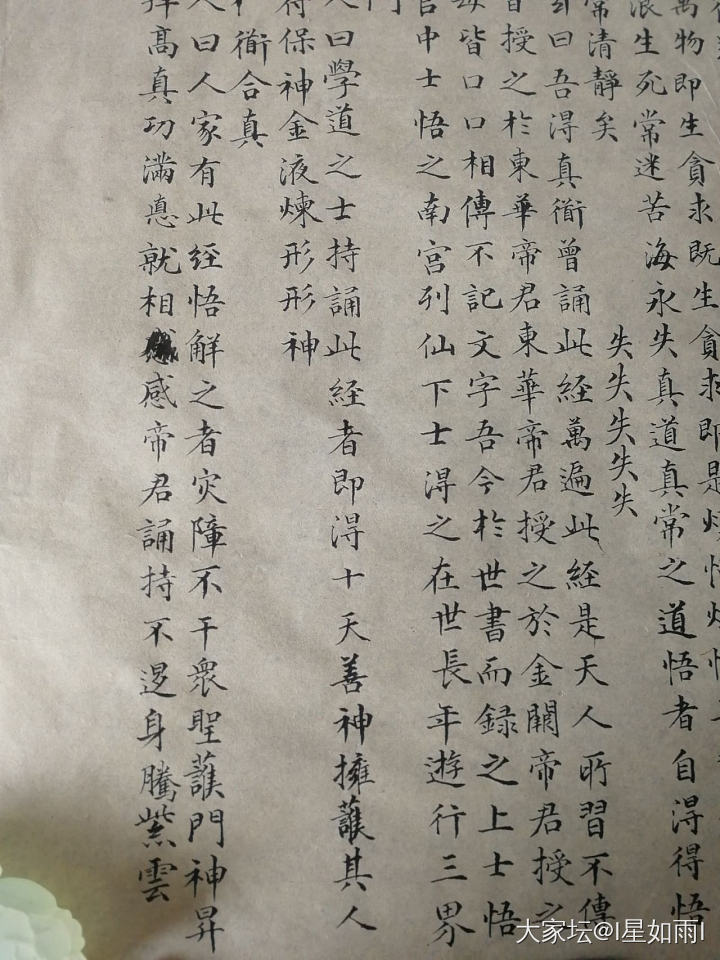 萬物即生貪求既生貪求即是煩惱煩惱
浪生死常迷苦海永失真道真常之道悟者自得得悟
常清靜矣
失失失失失
曰吾得真衜曾誦此經萬遍此經是天人所習不傳
授之於東華帝君東華帝君授之於金闕帝君授之
皆口口相傳不記文字吾今於世書而録之上士悟
官中士悟之南宮列仙下士得之在世長年遊行三界
人曰學道之士持誦此經者即得十天善神擁護其人
符保神金液煉形形神
衜合真
人曰人家有此經悟解之者灾障不干衆聖護門神昇
高真功滿惪就相感帝君誦持不退身騰紫雲
大家坛@I星如雨I